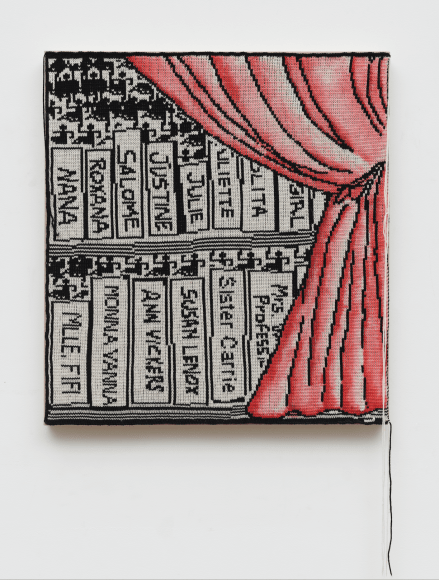 NANA
ROXANA
SALOME
JUSTINE
JULIE
ULIETTE
OLITA
MLLE. FIFI
MONNA VANNA
ANN VICKERS
SUSAN LENOX
Sister Carrie
Mrs
Profess